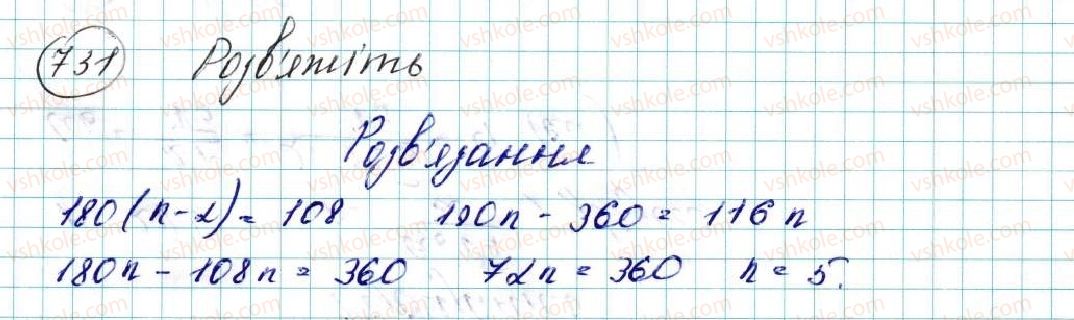 731 Розв'яжіть
Розв'язання
180(n-2) = 108 190n - 360 = 116 n
180n - 108n = 360 72n = 360 n = 5.